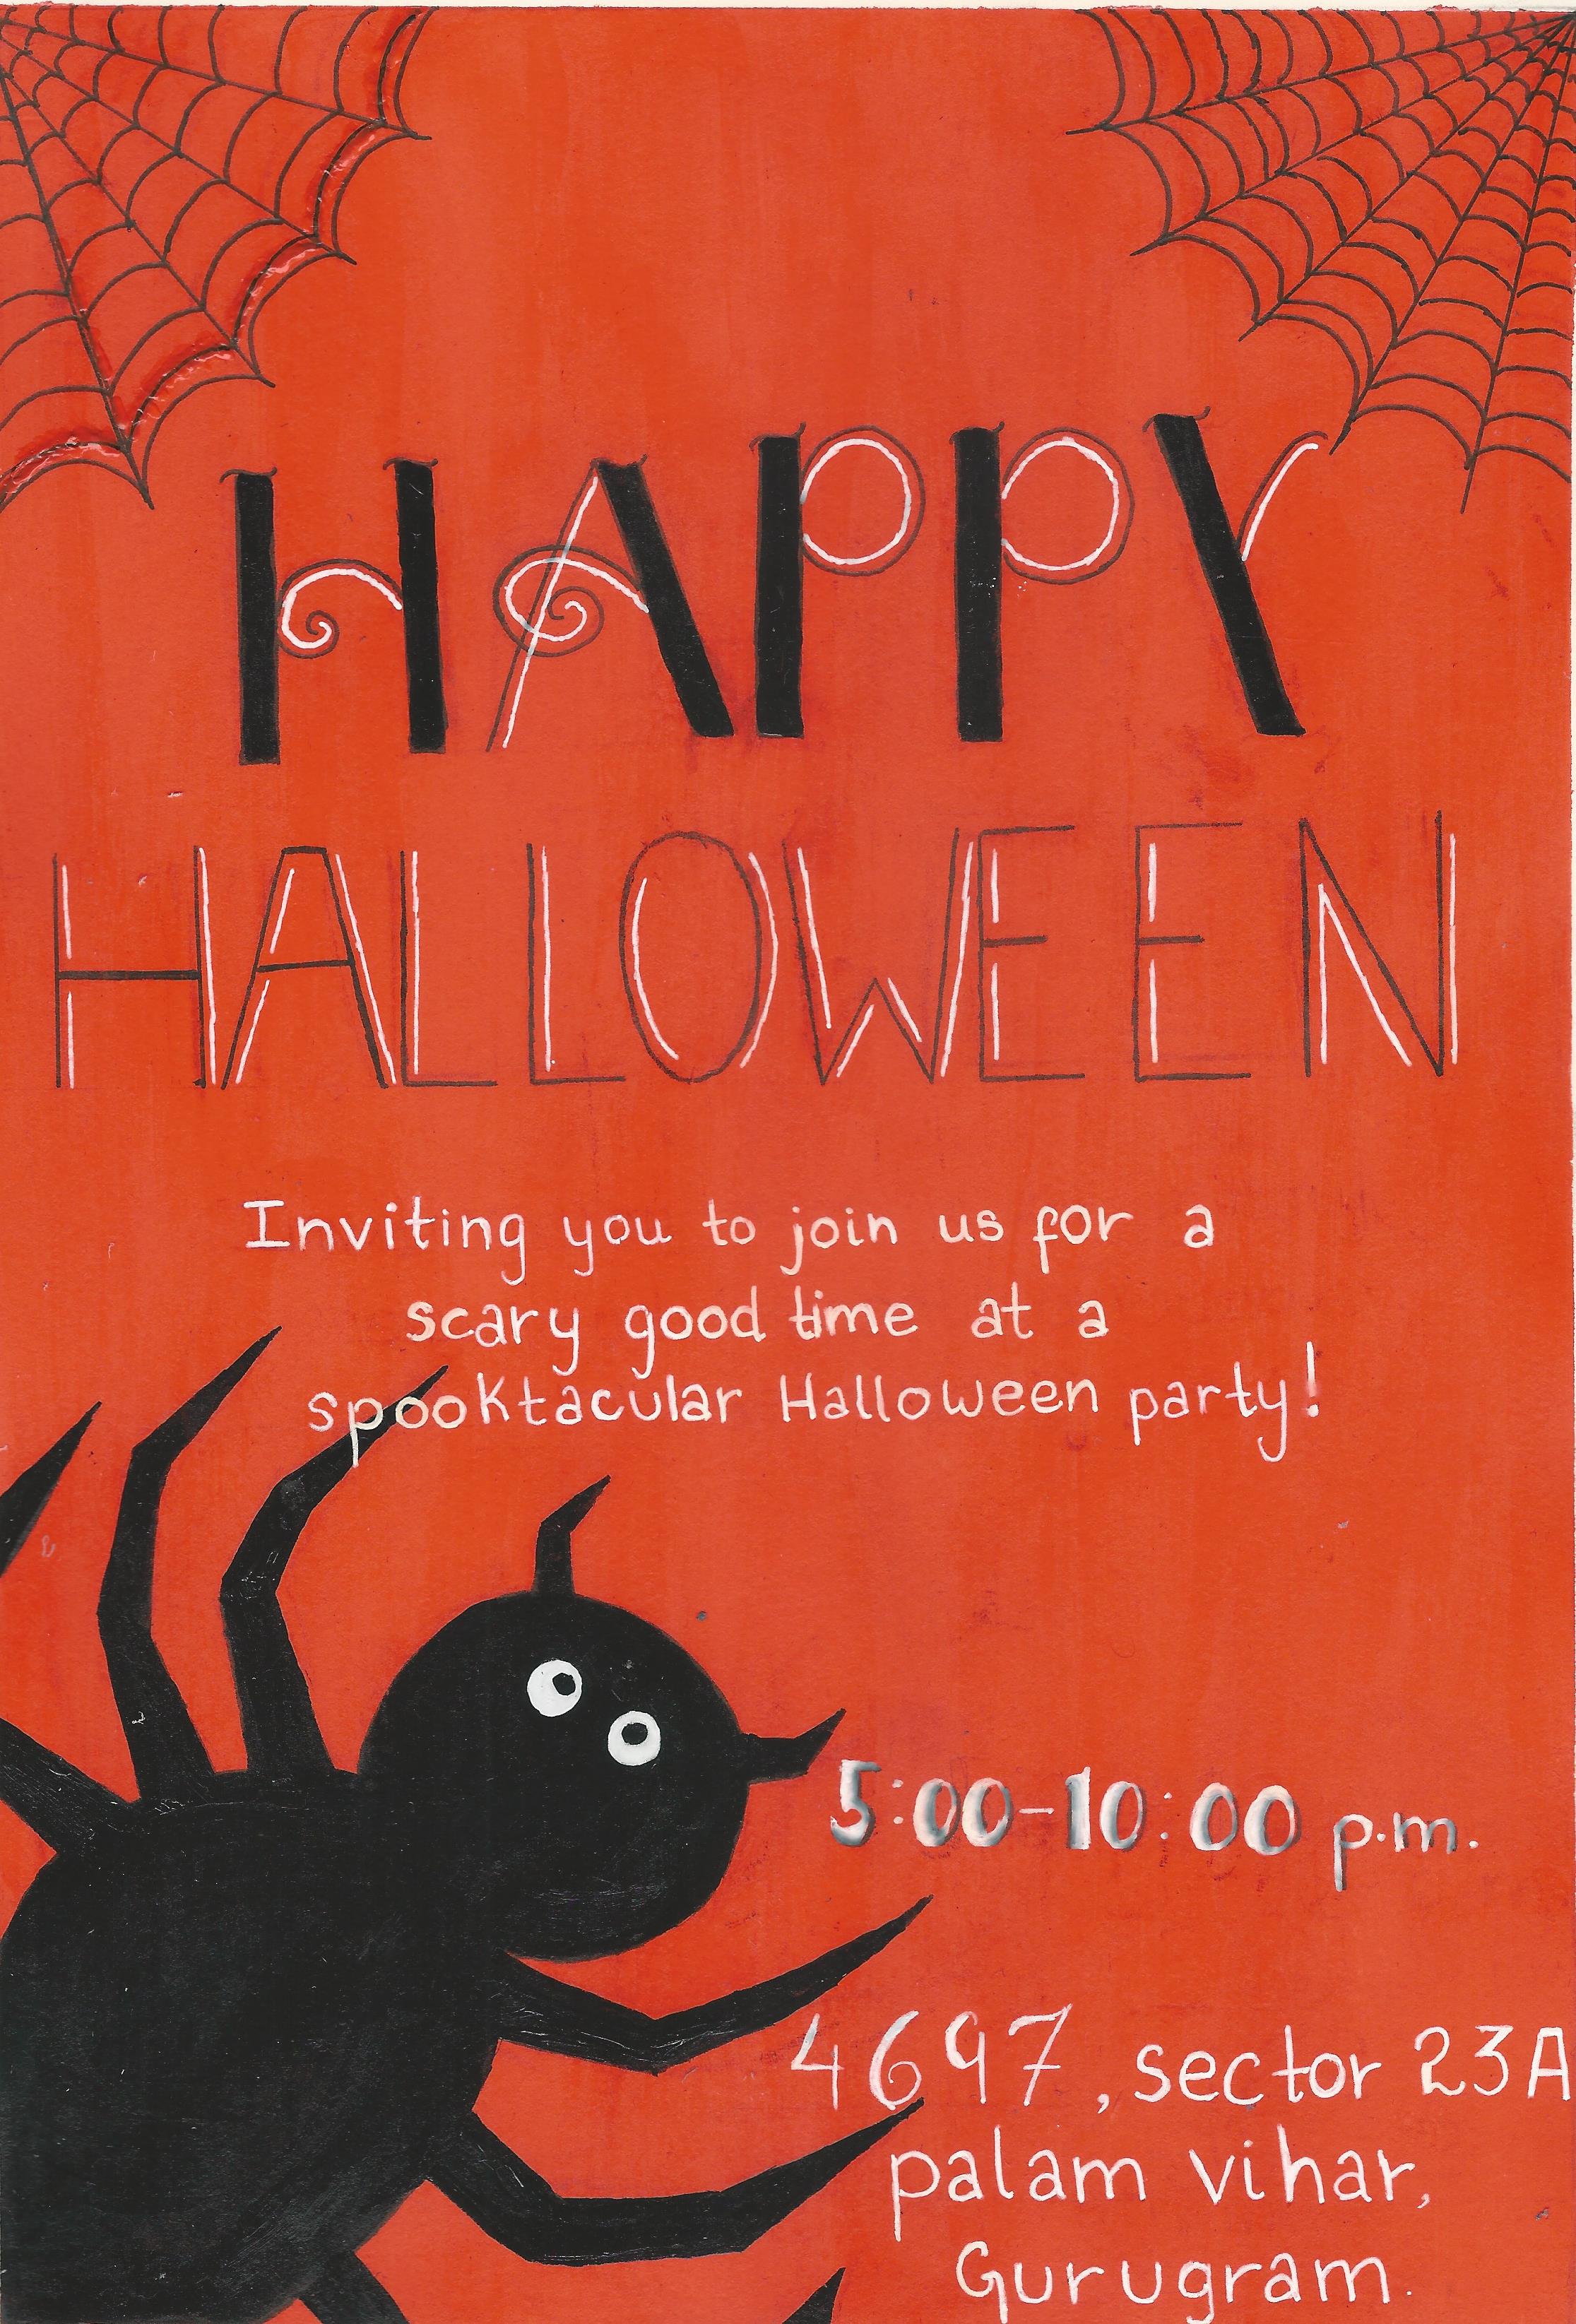 HAPPY
HALLOWEEN
Inviting you to join us for a
scary good time at a
spooktacular Halloween party!
5:00-10:00 p.m.
4697, sector 23A
palam vihar,
Gurugram.